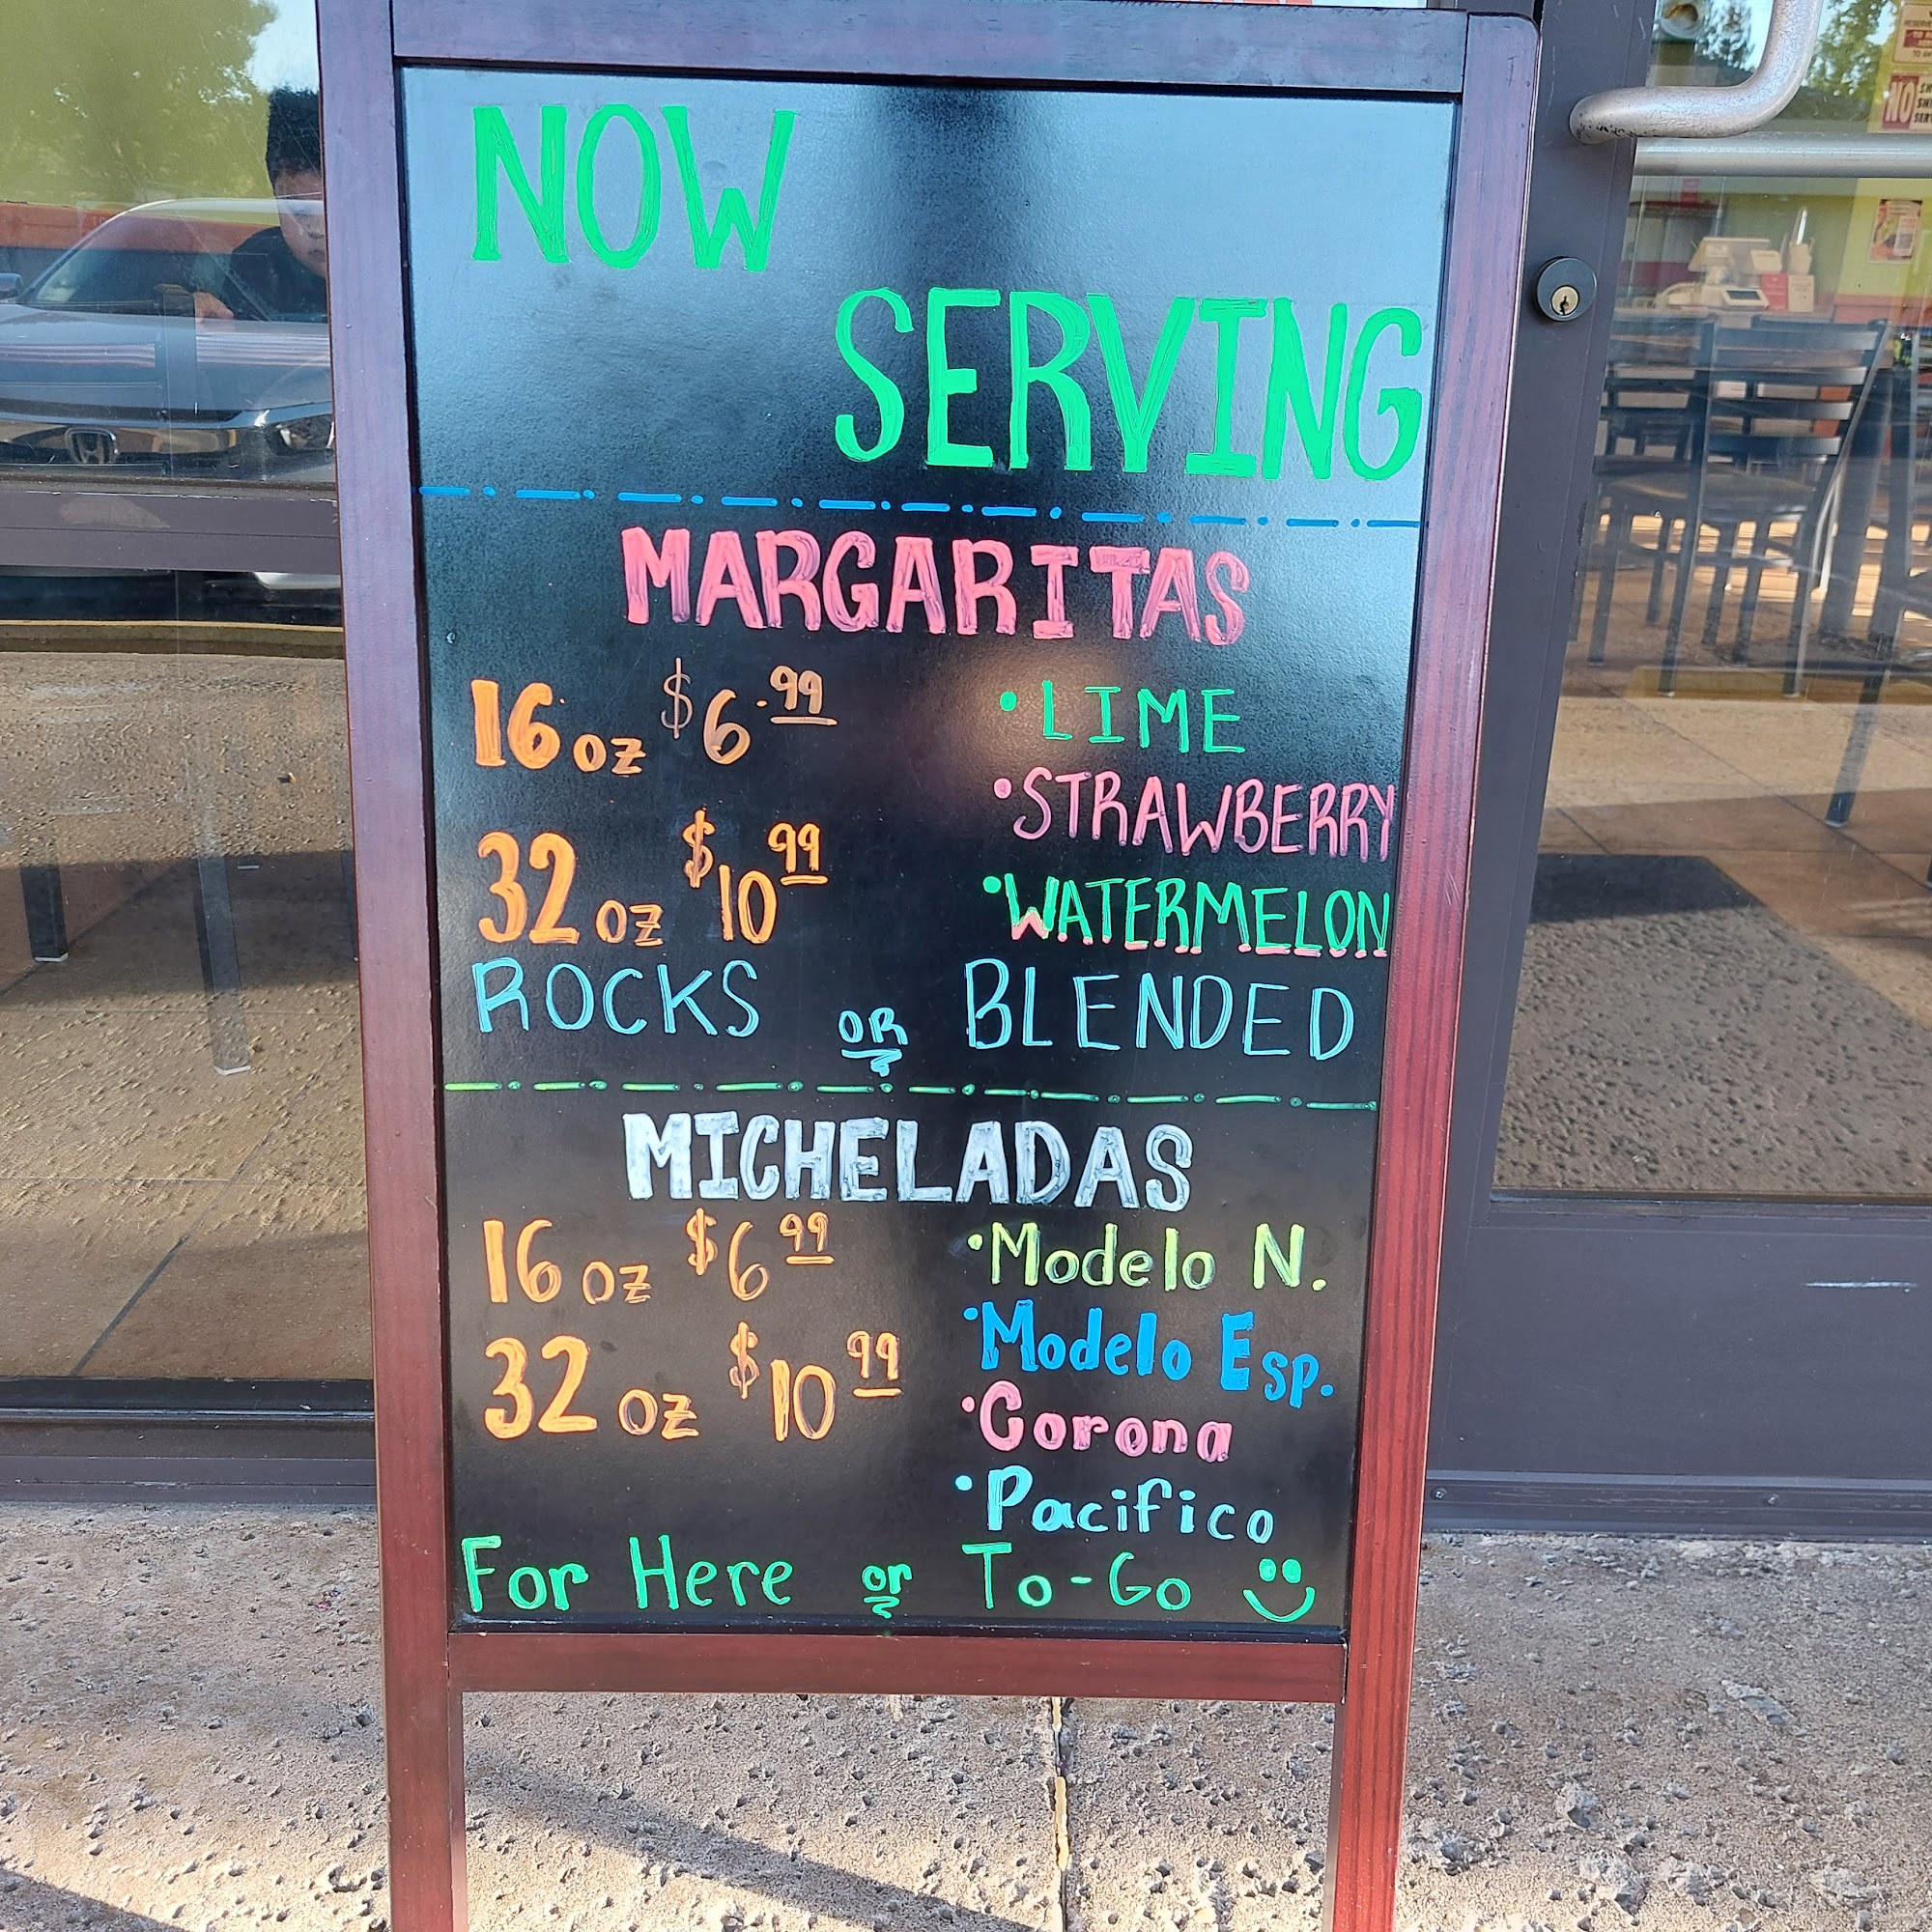 NOW
SERVING
MARGARITAS
16 oz $6.99
32 oz $10 99
• LIME
• STRAWBERRY
• WATERMELON
ROCKS OR BLENDED
MICHELADAS
16 oz $6 99
32 oz $10 99
• Modelo N.
• Modelo Esp.
• Corona
• Pacifico
For Here or To-Go
NO